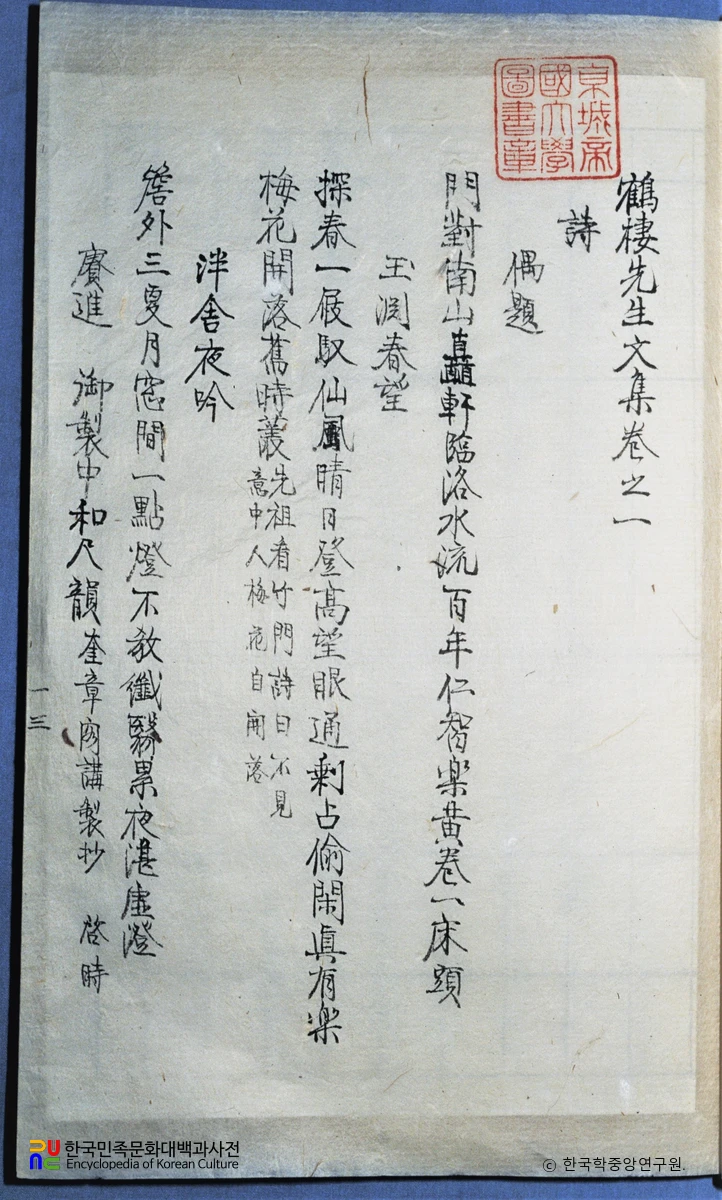 鶴棲先生文集卷之一
京城帝國大學圖書章
詩
偶題
門對南山矗軒臨洛水流百年仁智楽黄卷一床頭
玉淵春望
探春一屐馭仙風晴日登高望眼通剩占偷閑眞有楽
梅花開落舊時叢先祖看竹門詩曰不見
意中人梅花自開落
泮舍夜吟
簷外三更月窓間一點燈不教纖翳累夜湛虛澄
賡進 御製中和尺韻奎章閣講製抄 啓時
一三
한국민족문화대백과사전
Encyclopedia of Korean Culture
ⓒ 한국학중앙연구원.